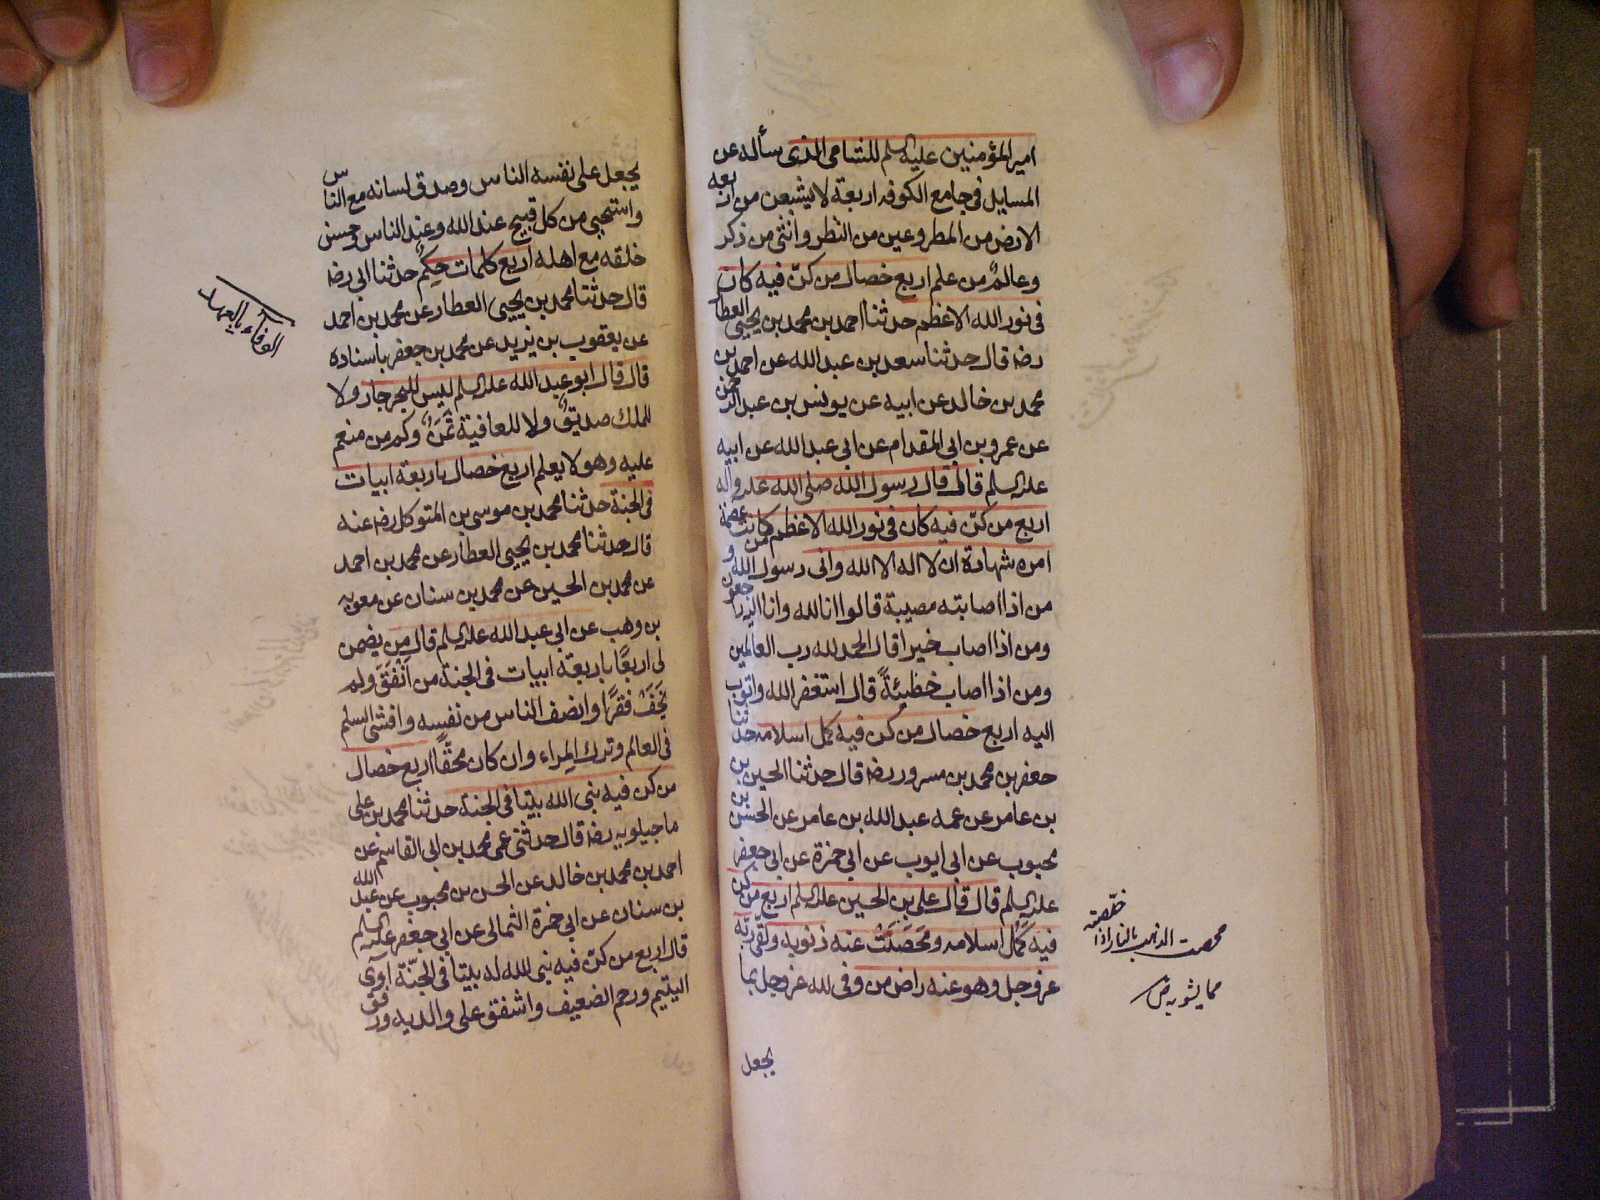 امير المؤمنين عليه السلم للشامى الذى سأله عن
المسايل فى جامع الكوفه اربعة لا يشبعن من اربعه
الارض من المطر وعين من النظر وانثى من ذكر
وعالم من علم اربع خصال من كنّ فيه كان
فى نور الله الاعظم حدثنا احمد بن محمد بن يحيى العطار
رضه قال حدثنا سعد بن عبد الله عن احمد بن
محمد بن خالد عن ابيه عن يونس بن عبد الرحمن
عن عمرو بن ابى المقدام عن ابى عبد الله عن ابيه
عليه السلم قال قال رسول الله صلى الله عليه وآله
اربع من كنّ فيه كان فى نور الله الاعظم من كانت عصمة
امره شهادة ان لا اله الا الله وانى رسول الله و
من اذا اصابته مصيبة قالوا انا لله وانا اليه راجعون
ومن اذا اصاب خيرا قال الحمد لله رب العالمين
ومن اذا اصاب خطيئةً قال استغفر الله واتوب
اليه اربع خصال من كن فيه كمل اسلامه حدثنا
جعفر بن محمد بن مسرور رضه قال حدثنا الحسين بن
بن عامر عن عمه عبد الله بن عامر عن الحسن بن
محبوب عن ابى ايوب عن ابى حمزة عن ابى جعفر
عليه السلم قال قال على بن الحسين عليه السلم اربع من كن
فيه كَمُل اسلامه ومحصت عنه ذنوبه ولقى ربّه
عز وجل وهو عنه راض من وفى لله عز وجل بما
يجعل
محصت الذهب بالنار اذا خلّصته
مما يشوبه ص
يجعل على نفسه الناس وصدق لسانه مع الناس
واستحيى من كل قبيح عند الله وعند الناس وحسن
خلقه مع اهله اربع كلمات حِكم حدثنا ابى رضه
قال حدثنا محمد بن يحيى العطار عن محمد بن احمد
عن يعقوب بن يزيد عن محمد بن جعفر باسناده
قال قال ابو عبد الله عليه السلم ليس للبحر جار ولا
للملك صديقٌ ولا للعافية ثَمَنٌ وكم من منعم
عليه وهو لا يعلم اربع خصال باربعة ابيات
فى الجنة حدثنا محمد بن موسى بن المتوكل رضه عنه
قال حدثنا محمد بن يحيى العطار عن محمد بن احمد
عن محمد بن الحسين عن محمد بن سنان عن معويه
بن وهب عن ابى عبد الله عليه السلم قال من يضمن
لى اربعًا باربعة ابيات فى الجنة من اَنْفَقَ ولم
يَخَفْ فقرًا وانصف الناس من نفسه وافشى السلم
فى العالم وترك المِراء وان كان محقًا اربع خصال
من كن فيه بنى الله بيتا فى الجنة حدثنا محمد بن على
ماجيلويه رضه قال حدثنى عمى محمد بن ابى القاسم عن
احمد بن محمد بن خالد عن الحسن بن محبوب عن عبد الله
بن سنان عن ابى حمزة الثمالى عن ابى جعفر عليه السلم
قال اربع من كنّ فيه بنى الله له بيتا فى الجنّة آوى
اليتيم ورحم الضعيف واشفق على والديه ورفق
الوفاء بالعهد